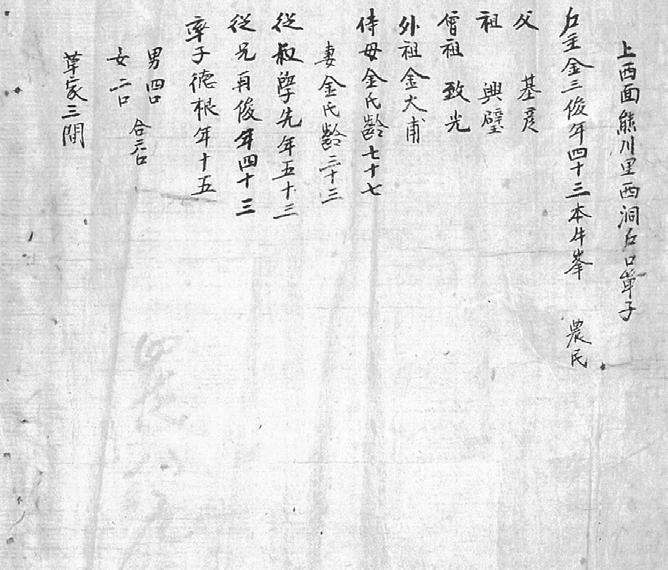 上西面熊川里西澗戶口單子
戶主金三俊年四十三本牛峯 農民
父 基彦
祖 興璧
曾祖 致光
外祖金大甫
侍母金氏齡七十七
妻金氏齡三十三
從叔學先年五十三
從兄再俊年四十三
率子德根年十五
男四口 合六口
女二口
草家三間